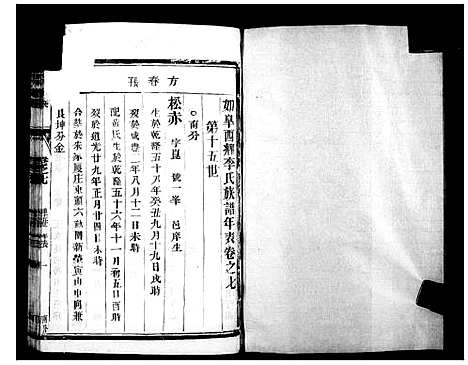 如皋西鄉李氏族譜年表卷之七
第十五世
南分
松赤 字崑 號一峯 邑庠生
生於乾隆五十八年癸丑九月十九日戌時
歿於咸豐二年八月十二日未時
配黃氏生於乾隆五十六年十一月初五日酉時
歿於道光廿九年正月廿四日未時
合葬於朱家園庄東頭六
艮坤分金